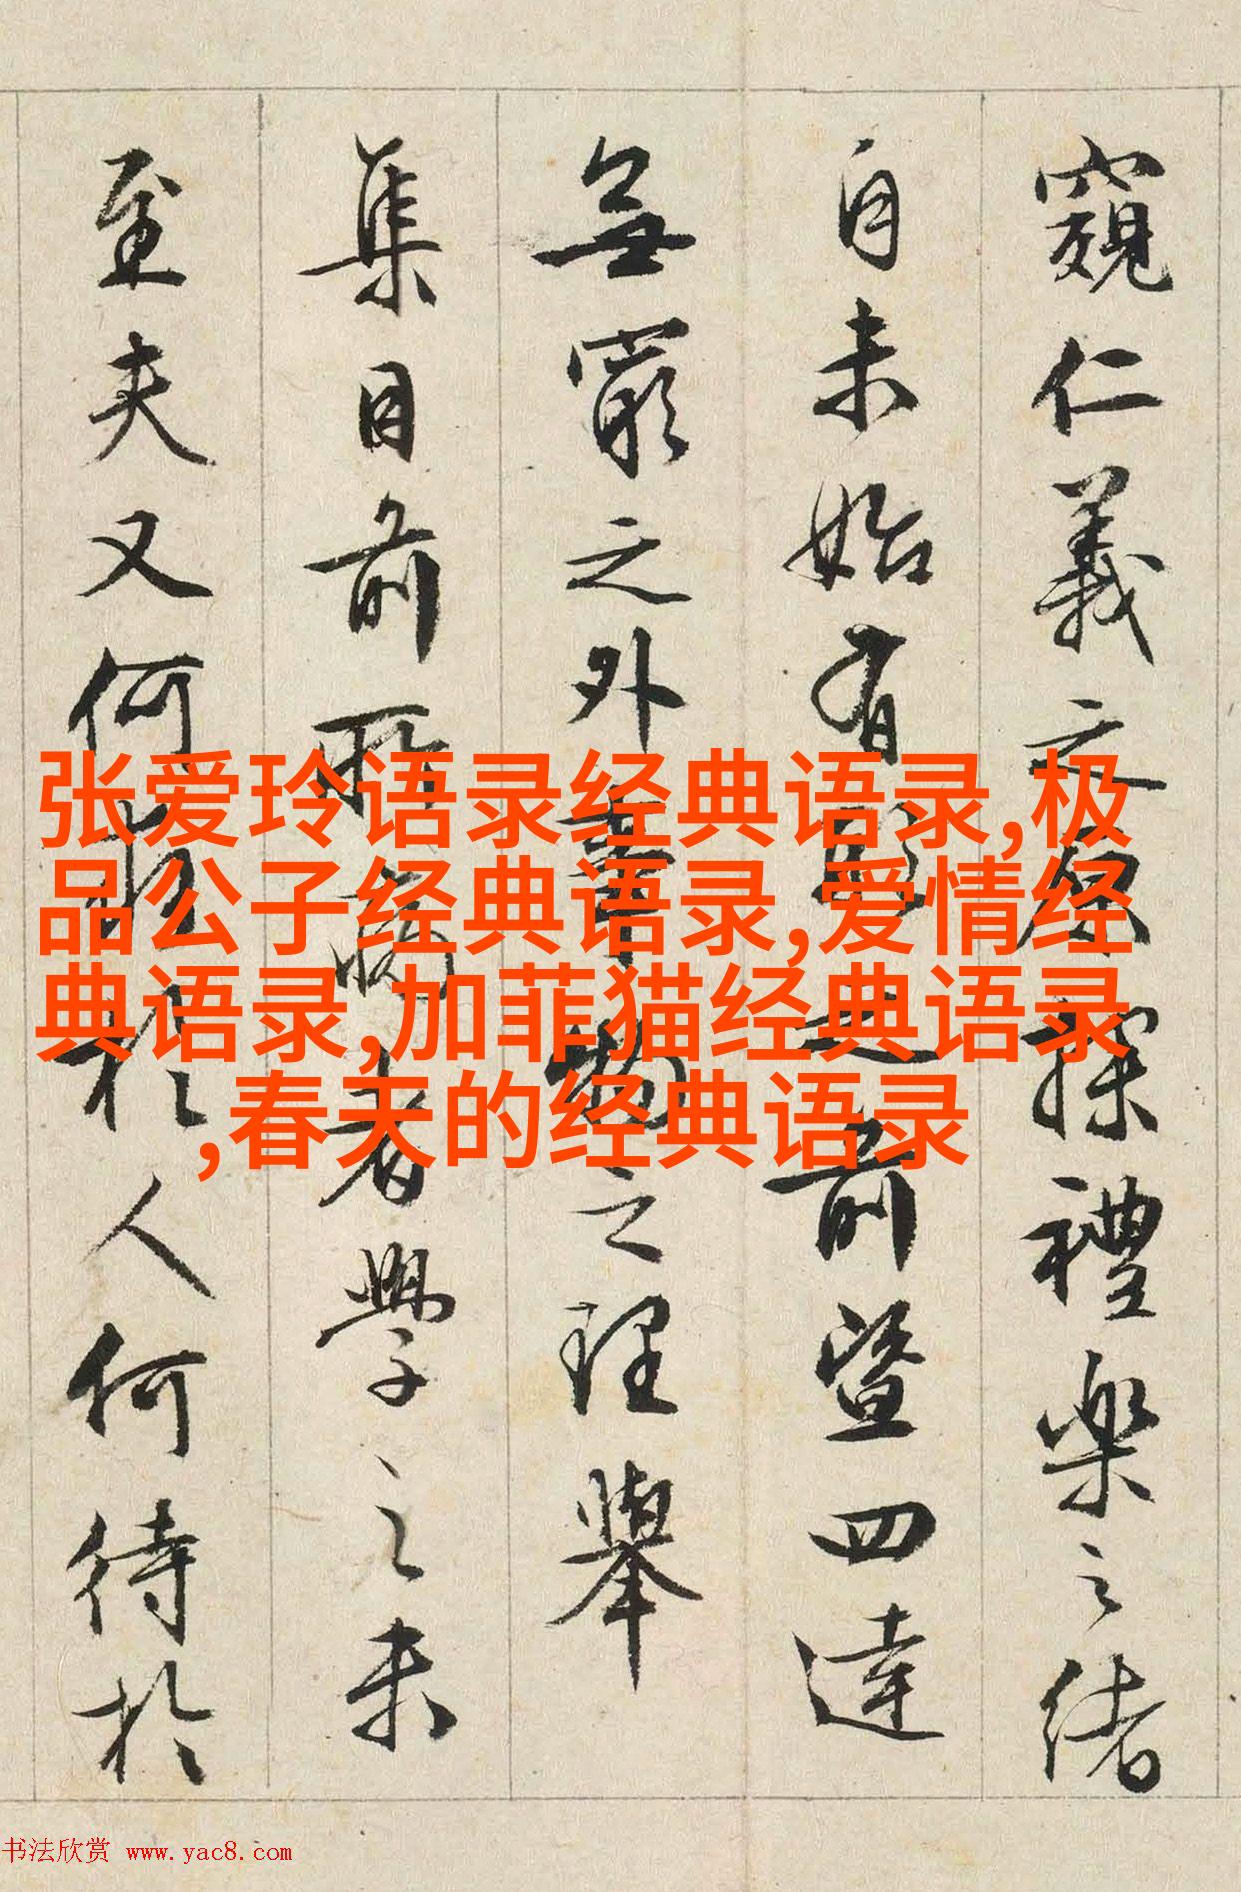 张爱玲语录经典语录,极
品公子经典语录,爱情经
典语录,加菲猫经典语录
,春天的经典语录
窺仁義之原探禮樂之緒
自未始有之前暨四達
無窮之外事物之理舉
集目前所病者學之未
至夫又何於人何待於
书法欣赏 www.yac8.com